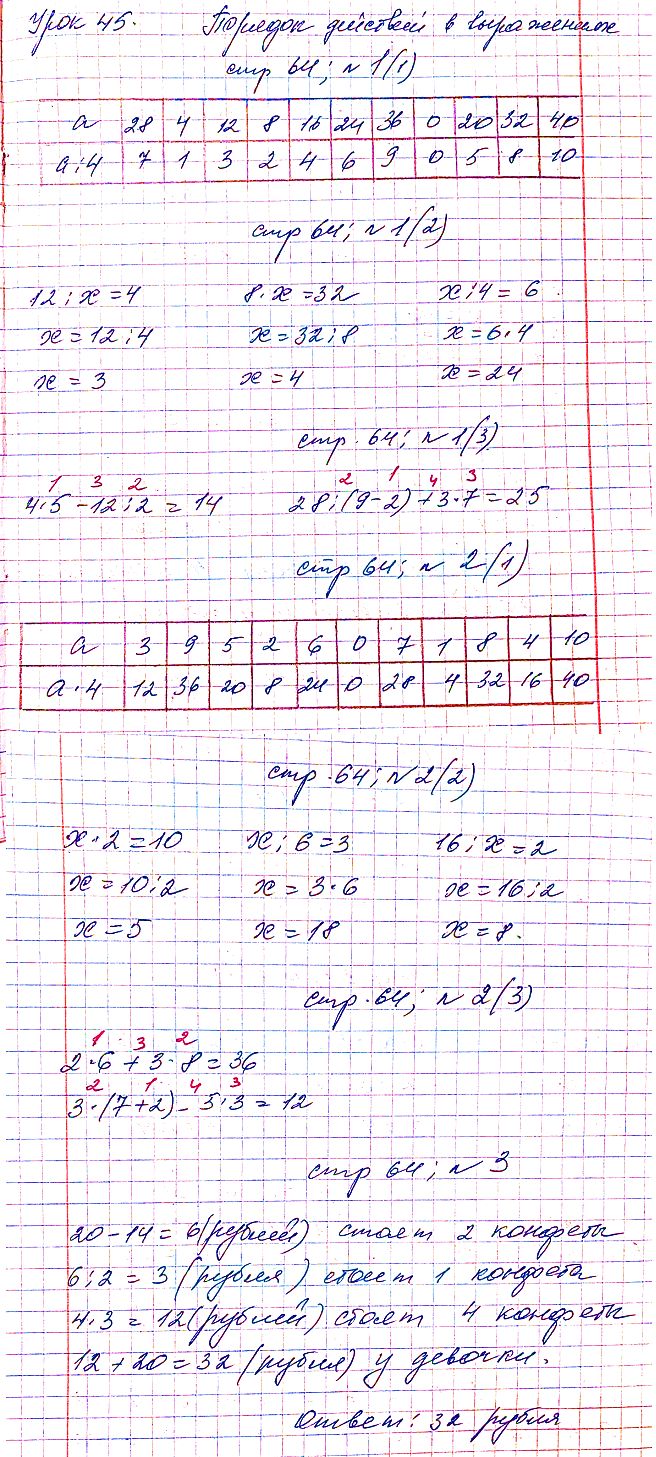 Урок 45. Порядок действий в выражениях
стр 64; № 1(1)
а 28 4 12 8 16 24 36 0 20 32 40
а:4 7 1 3 2 4 6 9 0 5 8 10
стр 64; № 1(2)
12:х=4 8·х=32 х:4=6
х=12:4 х=32:8 х=6·4
х=3 х=4 х=24
стр. 64; № 1(3)
1 3 2 2 1 4 3
4·5-12:2=14 28:(9-2)+3·7=25
стр 64; № 2(1)
а 3 9 5 2 6 0 7 1 8 4 10
а·4 12 36 20 8 24 0 28 4 32 16 40
стр.64; №2(2)
х·2=10 х:6=3 16:х=2
х=10:2 х=3·6 х=16:2
х=5 х=18 х=8.
стр.64; № 2(3)
1 3 2
2·6+3·8=36
2 1 4 3
3·(7+2)-5·3=12
стр 64; № 3
20-14=6(рублей) стоят 2 конфеты
6:2=3(рубля) стоит 1 конфета
4·3=12(рублей) стоят 4 конфеты
12+20=32(рубля) у девочки.
Ответ: 32 рубля